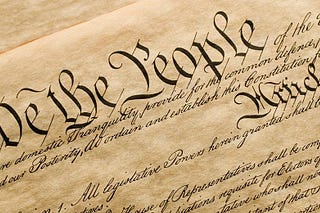 We the People of the
domestic Tranquility, provide for the common defence,
our Posterity, do ordain and establish this Constitution for
Article
All legislative Powers herein granted shall be
House of Representatives shall be comp
requisite for Electors of
who shall not